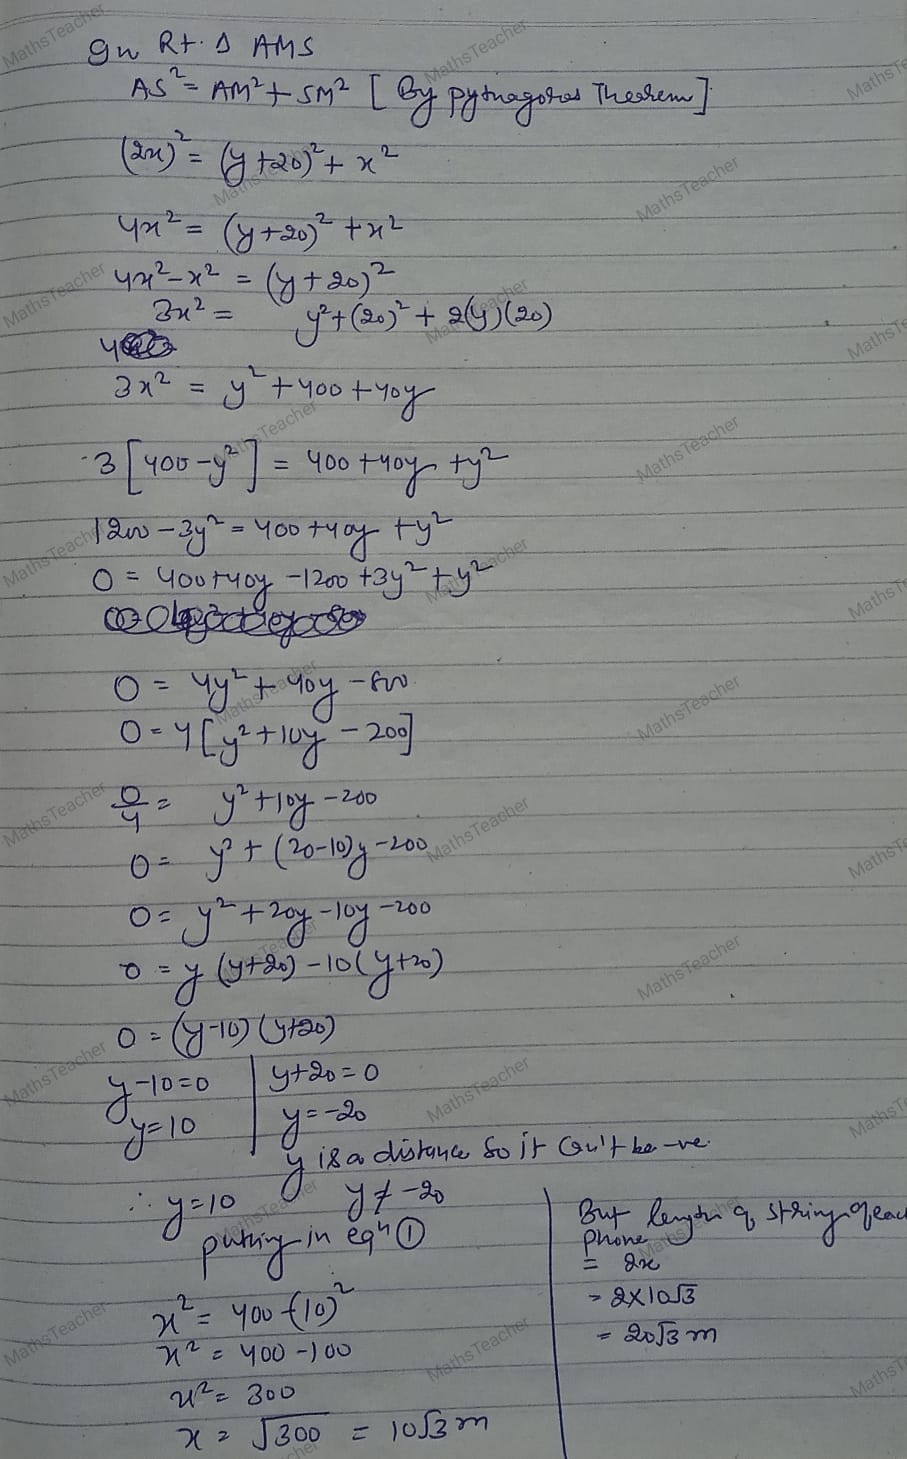 In Rt. Δ AMS
AS² = AM² + SM² [By pythagoras Theorem]
(2x)² = (y+20)² + x²
4x² = (y+20)² + x²
4x² - x² = (y+20)²
3x² = y² + (20)² + 2(y)(20)
3x² = y² + 400 + 40y
3[400 - y²] = 400 + 40y + y²
1200 - 3y² = 400 + 40y + y²
0 = 400 + 40y - 1200 + 3y² + y²
0 = 4y² + 40y - 800
0 = 4[y² + 10y - 200]
0/4 = y² + 10y - 200
0 = y² + (20-10)y - 200
0 = y² + 20y - 10y - 200
0 = y(y+20) - 10(y+20)
0 = (y-10)(y+20)
y - 10 = 0
y = 10
y + 20 = 0
y = -20
y is a distance so it can't be -ve.
∴ y = 10
y ≠ -20
putting in eqⁿ ①
x² = 400 - (10)²
x² = 400 - 100
x² = 300
x = √300 = 10√3 m
But length of string of each
phone
= 2x
= 2×10√3
= 20√3 m
MathsTeacher